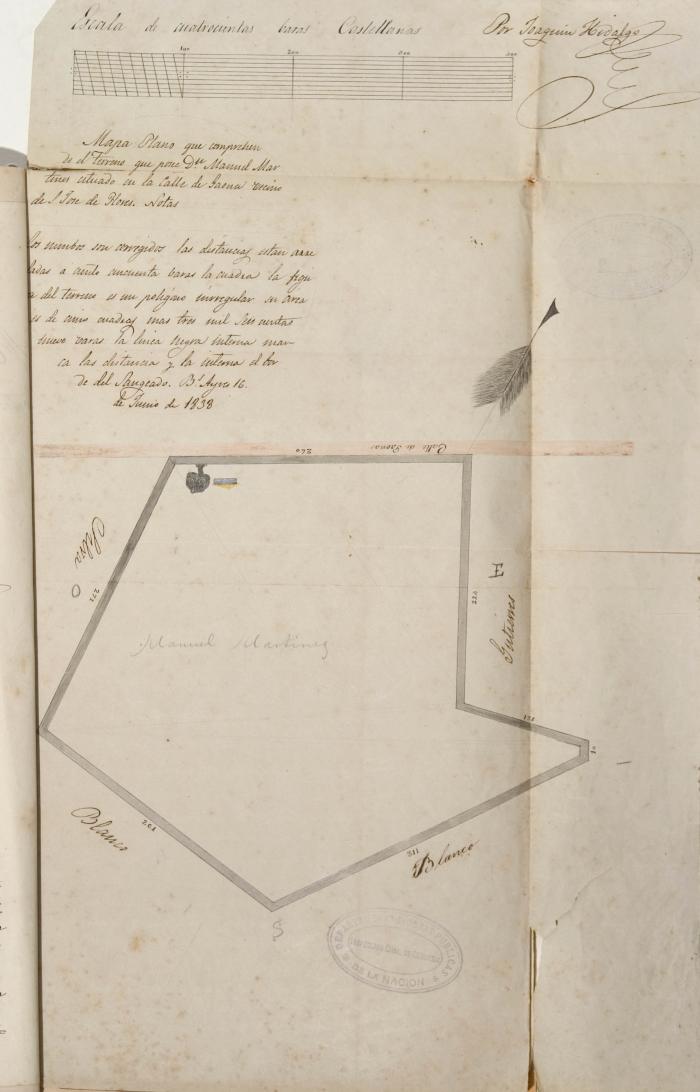 Escala de cuatrocientas baras Castellanas
Por Joaquin Hidalgo
100
200
300
400
Mapa Plano que comprehen
de el terreno que pose Dn Manuel Mar
tines cituado en la Calle de Gaona vecino
de S. Jose de Flores. Notas
Los rumbos son corregidos las distancias estan arre
ladas a ciento cincuenta baras la cuadra la figu
a del terreno es un poligono irregular su area
es de cinco cuadras mas tres mil
nueve varas la linea negra interna mar
ca las distancia y la interna el bor
de del Sangeado. Bs Ayres 16.
de Junio de 1838
Calle de Gaona
260
Silva
O
271
E
220
Gutierres
Manuel Martinez
121
10
Blanco
261
311
Blanco
S
DE LA NACION